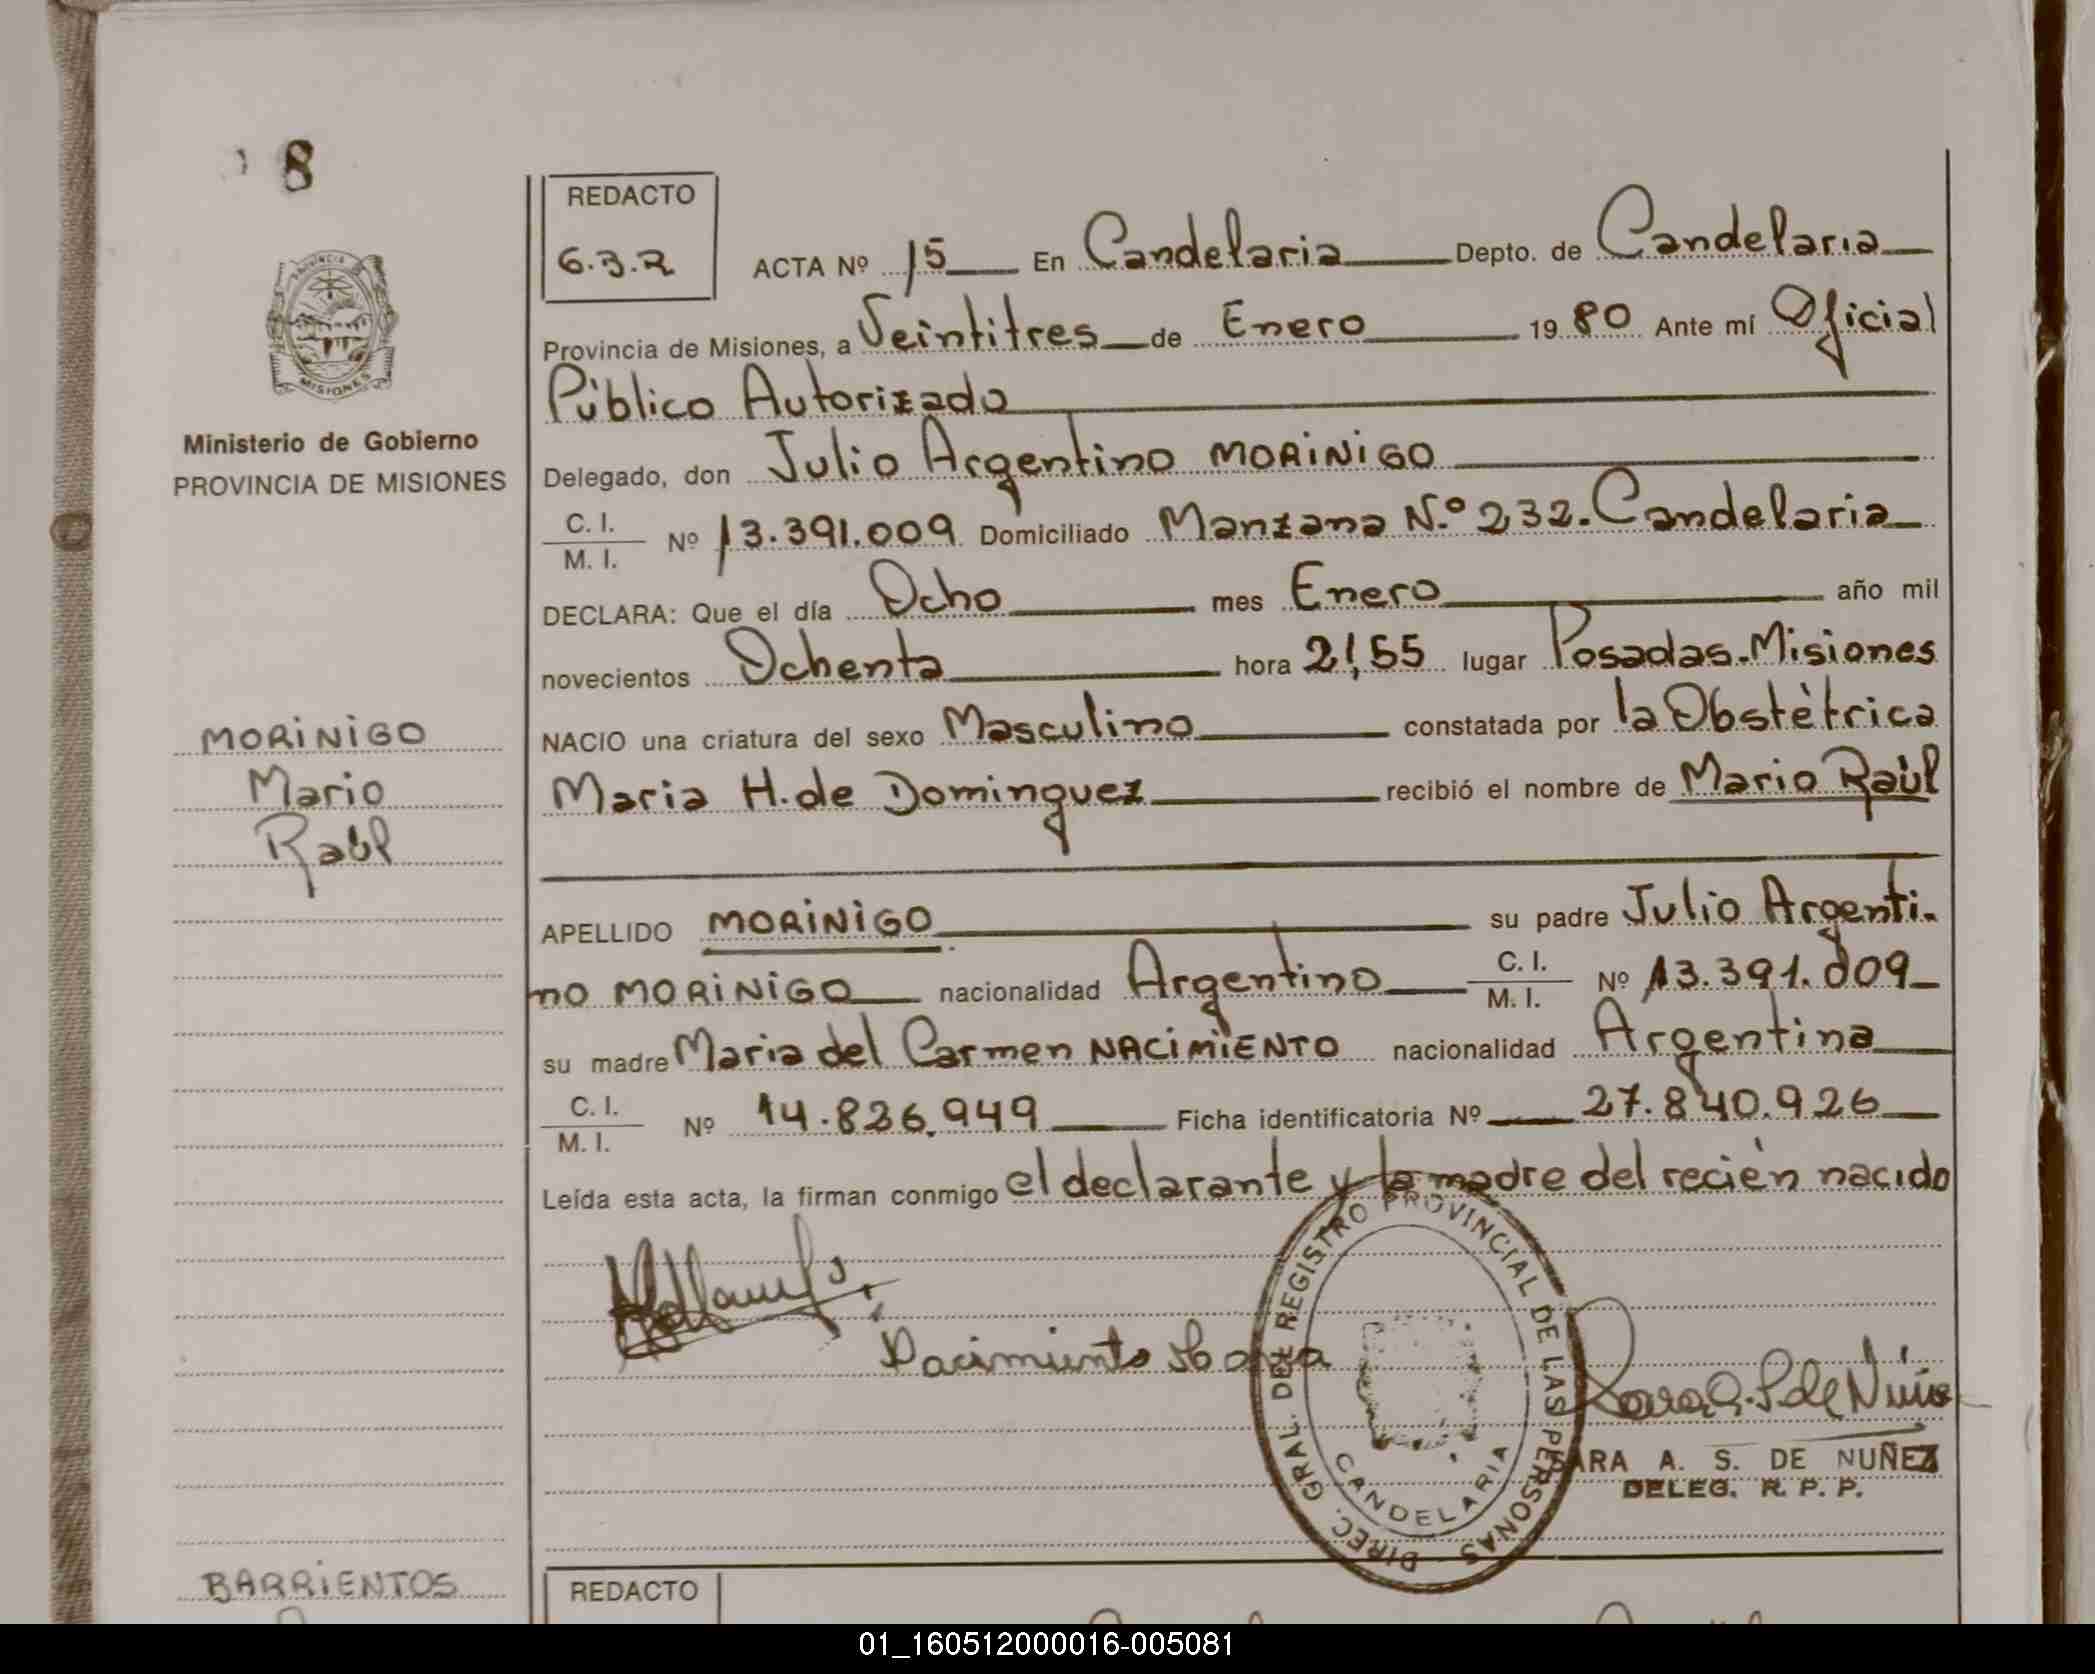 8
REDACTO
6.3.2
ACTA Nº 15 En Candelaria Depto. de Candelaria
Provincia de Misiones, a Veintitres de Enero 1980 Ante mí Oficial
Pùblico Autorizado
Ministerio de Gobierno
PROVINCIA DE MISIONES
Delegado, don Julio Argentino MORINIGO
C. I.
M. I.
Nº 13.391.009 Domiciliado Manzana N.º 232. Candelaria
DECLARA: Que el día Ocho mes Enero año mil
novecientos Ochenta hora 21,55 lugar Posadas-Misiones
NACIO una criatura del sexo Masculino constatada por la Obstètrica
Maria H. de Dominguez recibió el nombre de Mario Raùl
MORINIGO
Mario
Raùl
APELLIDO MORINIGO su padre Julio Argenti-
no MORINIGO nacionalidad Argentino C. I. M. I. Nº 13.391.009
su madre Maria del Carmen NACIMIENTO nacionalidad Argentina
C. I.
M. I.
Nº 14.826.949 Ficha identificatoria Nº 27.840.926
Leída esta acta, la firman conmigo el declarante y la madre del recièn nacido
Nacimiento
DIREC. GRAL. DEL REGISTRO PROVINCIAL DE LAS PERSONAS
CANDELARIA
Sara A. S. de Nuñez
SARA A. S. DE NUÑEZ
DELEG. R. P. P.
BARRIENTOS
REDACTO
01_160512000016-005081